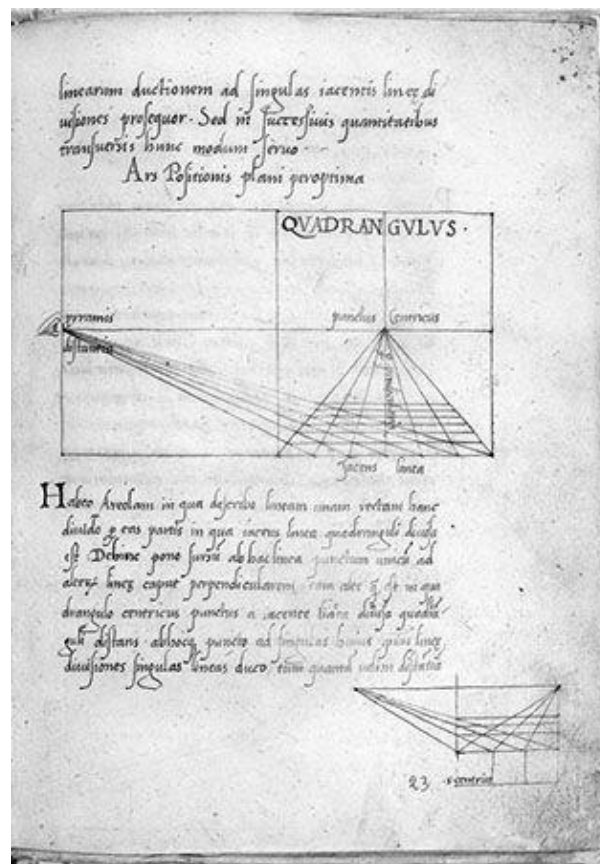 linearum ductionem ad singulas iacentis lineę di
uisiones prosequor. Sed in successiuis quantitatibus
transuersis hunc modum seruo
Ars Positionis plani peroptima
QVADRANGVLVS.
pyramis
punctus centricus
distantia
Jacens linea
Habeo Areolam in qua describo lineam unam rectam hanc
diuido eas partis in qua iacens linea quadranguli diuisa
est. Dehinc pono sursum ab hac linea punctum unicum ad
lineę caput perpendicularem in qua
drangulo centricus punctus a iacente diuisa quadra
distans ab hocque puncto ad singulas huius lineę
diuisiones singulas lineas duco, tum quantam uelim distantia
23